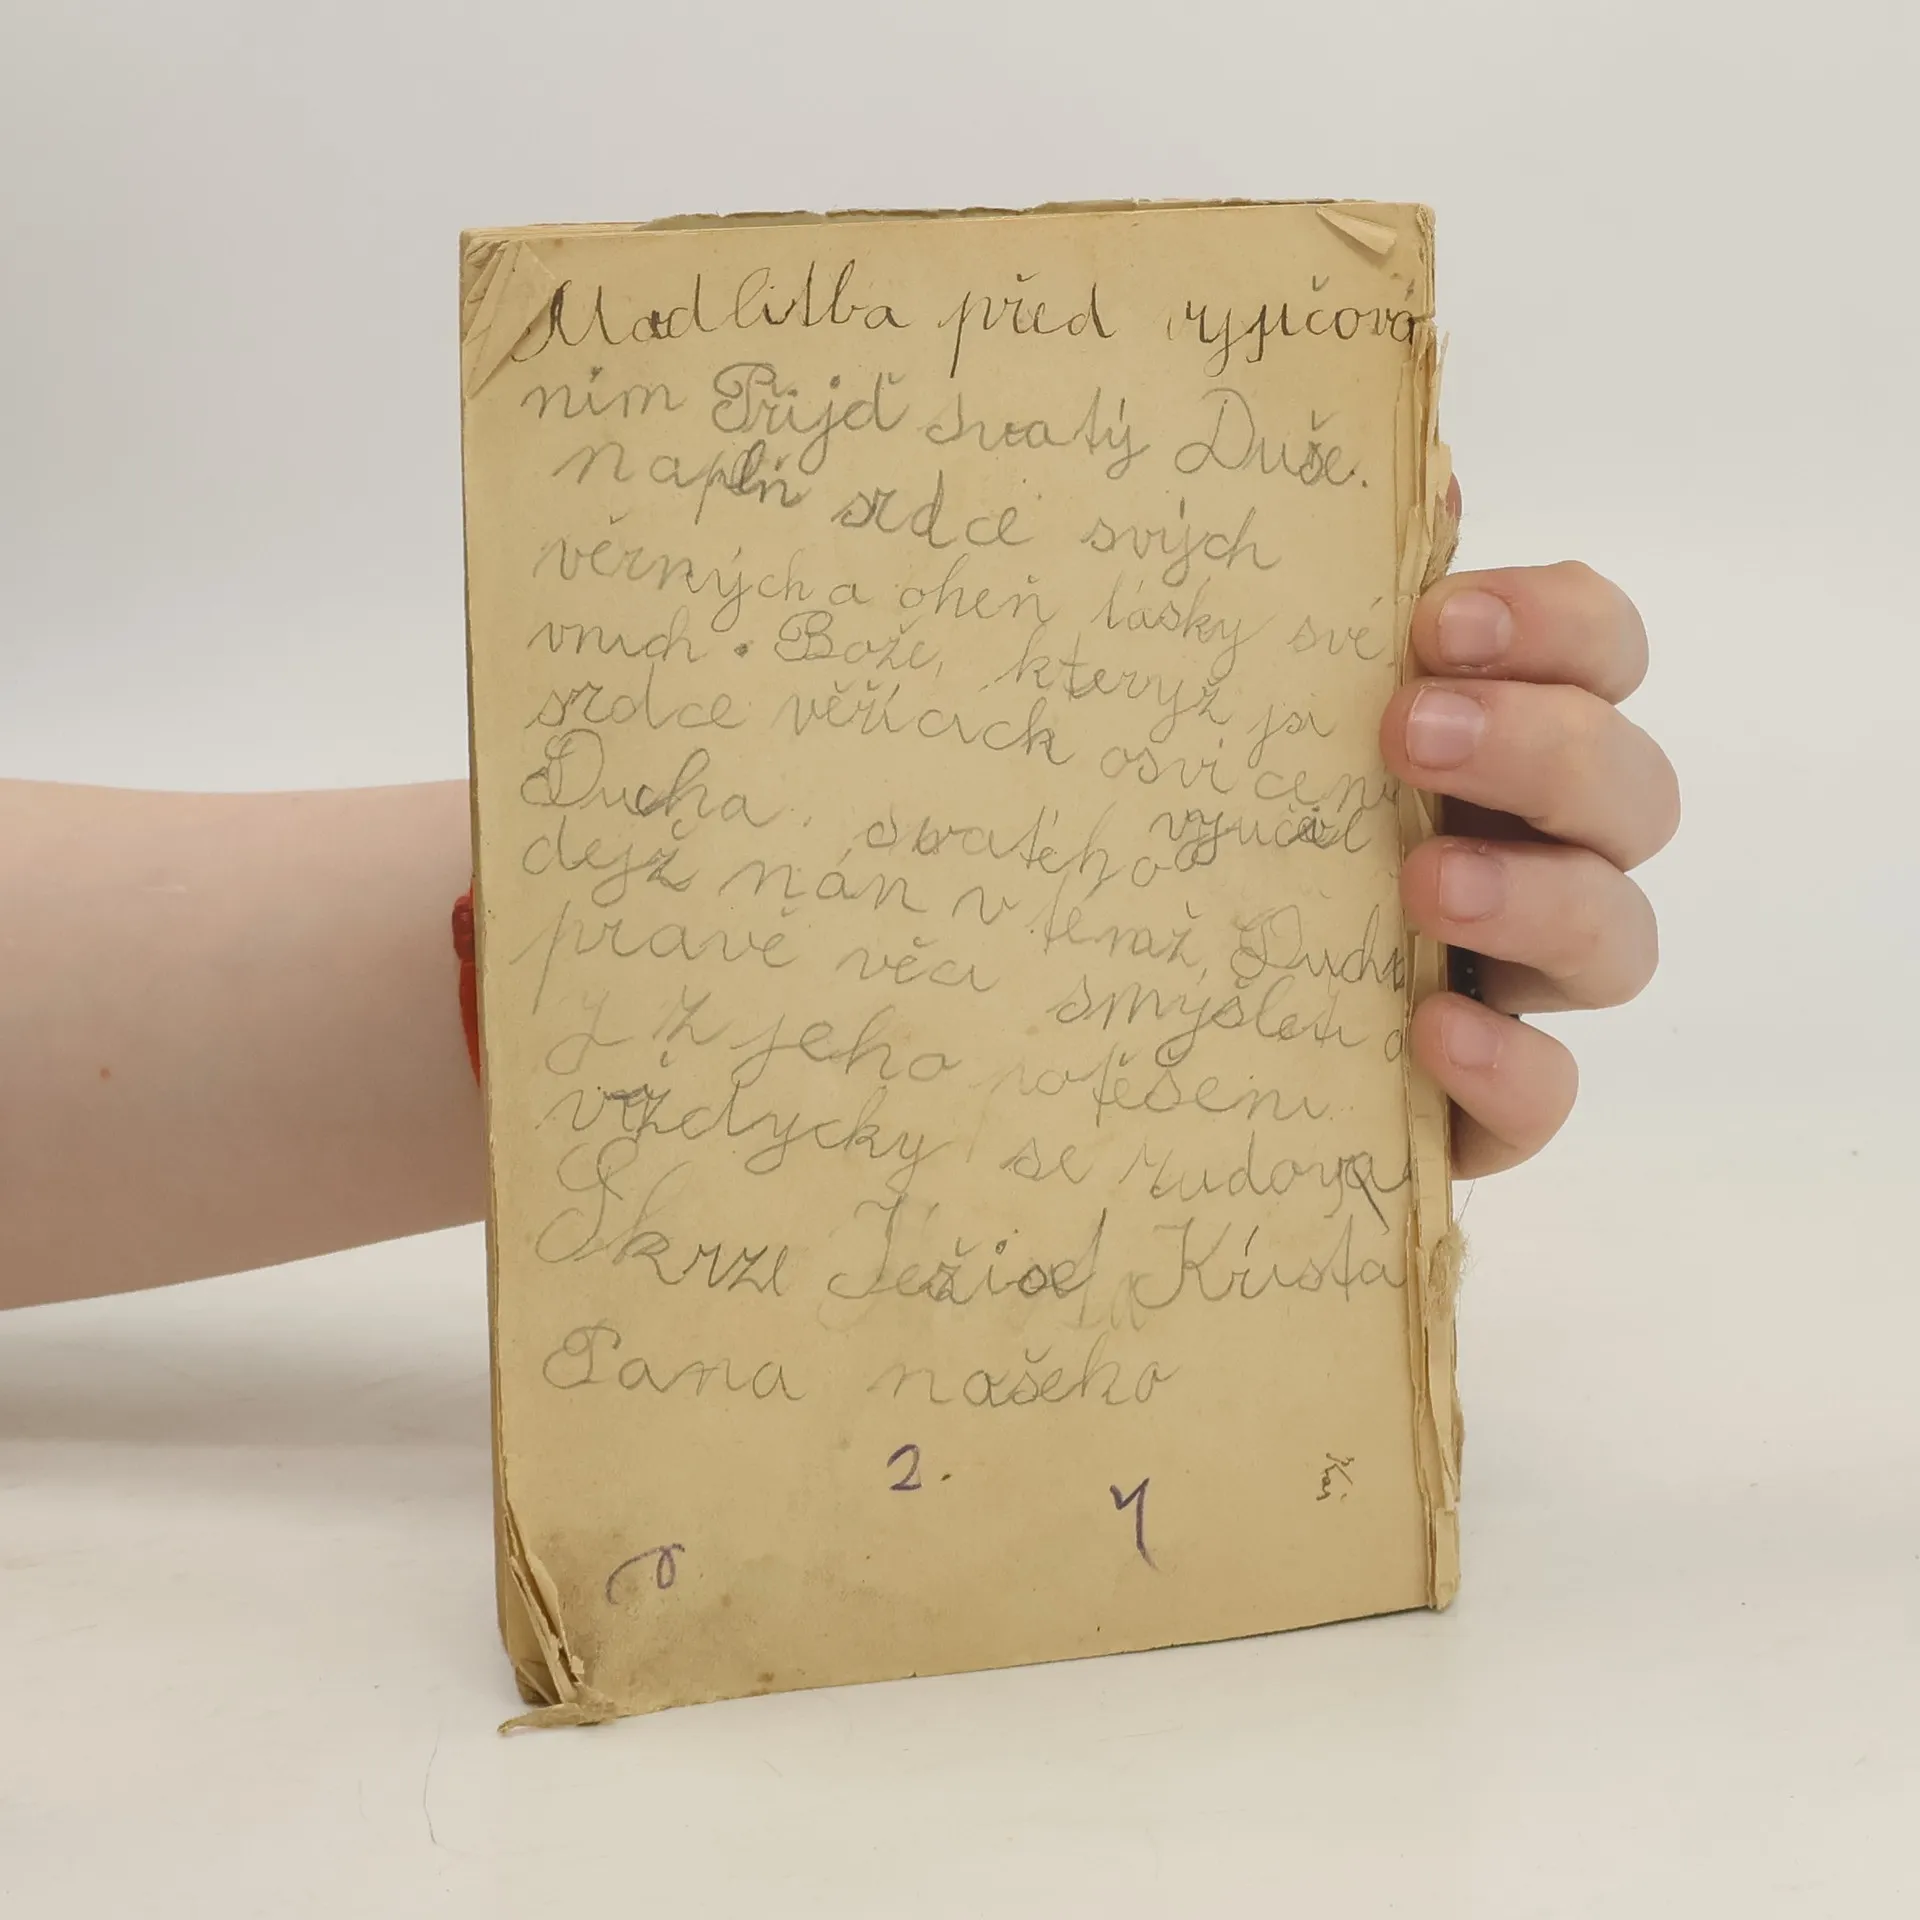 Modlitba před vyučová
ním Přijď svatý Duše.
naplň srdce svých
věrných a oheň lásky své
vnich. Bože, kterýž jsi
srdce věřících osvícení
Ducha svatého vyučil
dejž nán v témž Duchu
pravé věci smýšleti a
z jeho potěšení
vždycky se radova
Skrze Ježíse Krista
Pana našeho
2.